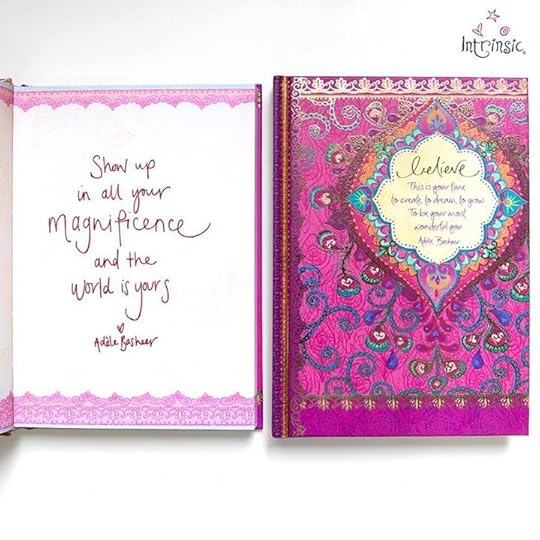 Intrinsic
Show up
in all your
magnificence
and the
world is yours
Adèle Basheer
believe
This is your time
to create, to dream, to grow
To be your most
wonderful you
Adèle Basheer